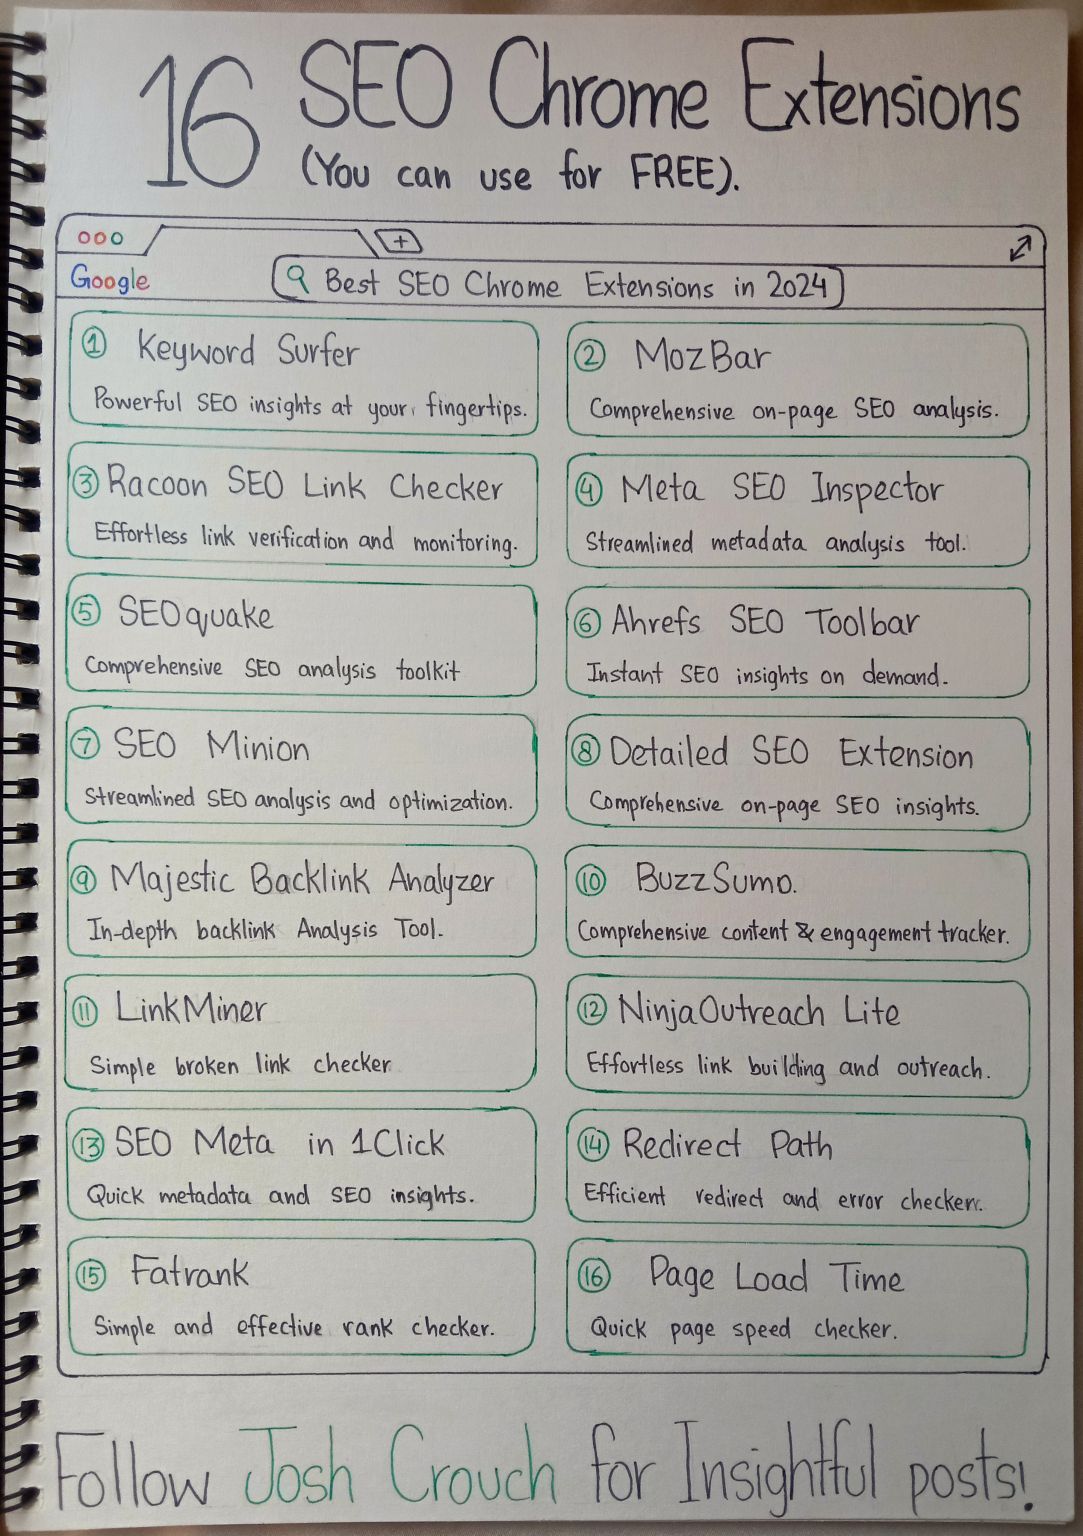 16 SEO Chrome Extensions
(You can use for FREE).
Google
Best SEO Chrome Extensions in 2024
1 Keyword Surfer
Powerful SEO insights at your fingertips.
2 MozBar
Comprehensive on-page SEO analysis.
3 Racoon SEO Link Checker
Effortless link verification and monitoring.
4 Meta SEO Inspector
Streamlined metadata analysis tool.
5 SEOquake
Comprehensive SEO analysis toolkit
6 Ahrefs SEO Toolbar
Instant SEO insights on demand.
7 SEO Minion
Streamlined SEO analysis and optimization.
8 Detailed SEO Extension
Comprehensive on-page SEO insights.
9 Majestic Backlink Analyzer
In-depth backlink Analysis Tool.
10 BuzzSumo.
Comprehensive content & engagement tracker.
11 LinkMiner
Simple broken link checker
12 NinjaOutreach Lite
Effortless link building and outreach.
13 SEO Meta in 1Click
Quick metadata and SEO insights.
14 Redirect Path
Efficient redirect and error checker.
15 Fatrank
Simple and effective rank checker.
16 Page Load Time
Quick page speed checker.
Follow Josh Crouch for Insightful posts!